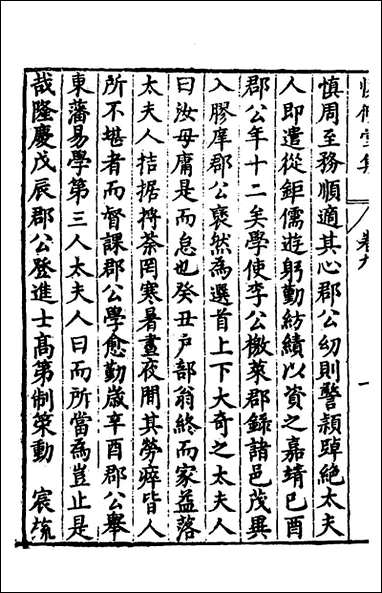 慎周至務順適其心郡公幼則警穎踔絶太夫
人即遣從鉅儒遊躬勤紡績以資之嘉靖己酉
郡公年十二矣學使李公檄萊郡錄諸邑茂異
入膠庠郡公裒然為選首上下大奇之太夫人
曰汝毋庸是而怠也癸丑戸部翁終而家益落
太夫人拮据捋荼罔寒暑晝夜閒其勞瘁皆人
所不堪者而督課郡公學愈勤歲辛酉郡公舉
東藩易學第三人太夫人曰而所當為豈止是
哉隆慶戊辰郡公登進士髙第制策動 宸旒